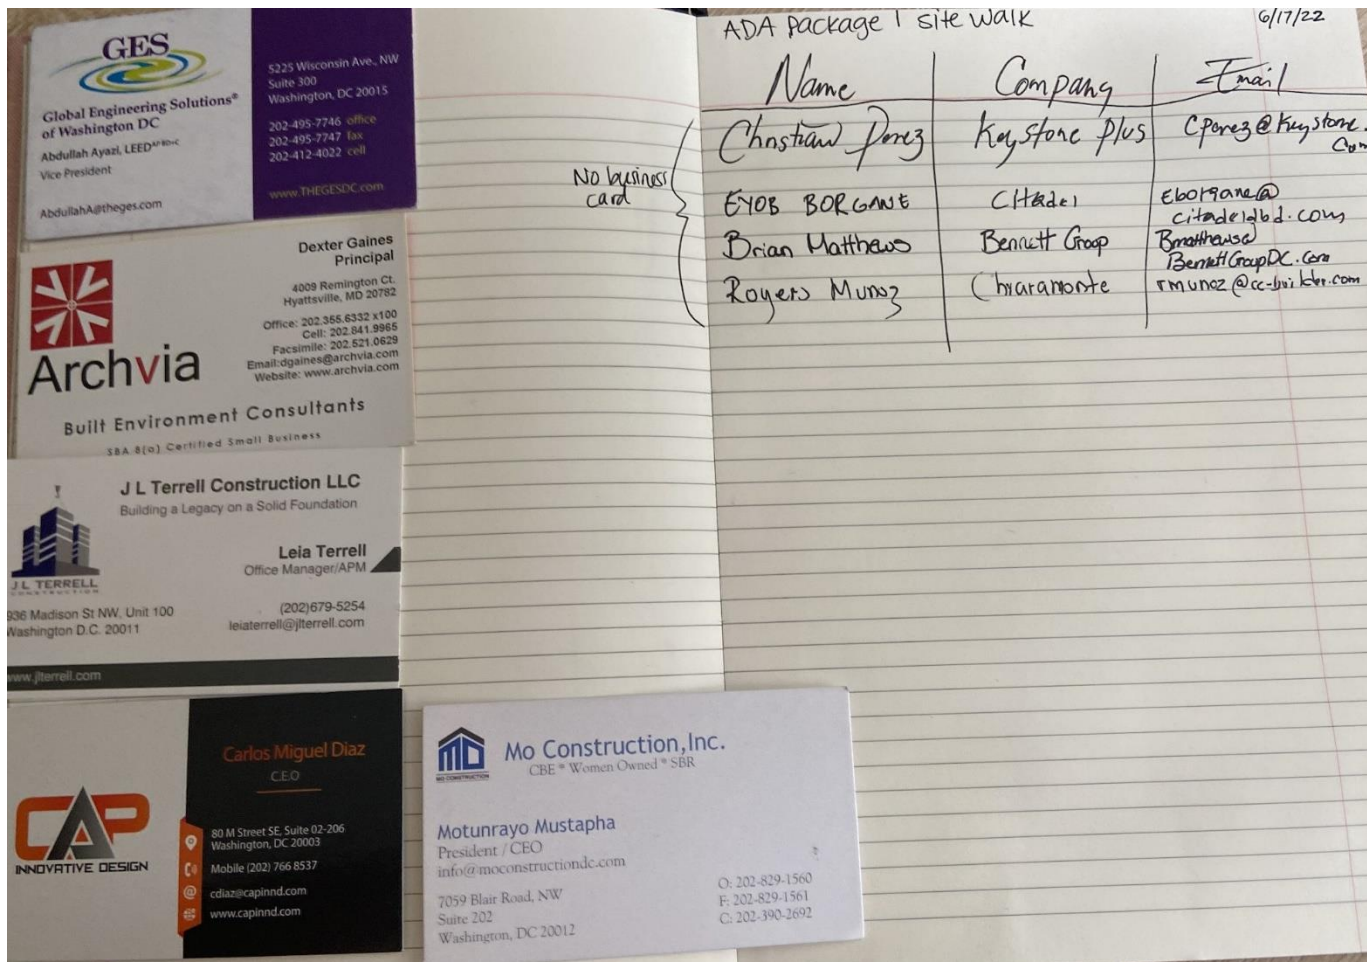 GES
Global Engineering Solutions®
of Washington DC
Abdullah Ayazi, LEED AP BD+C
Vice President
AbdullahA@theges.com
5225 Wisconsin Ave., NW
Suite 300
Washington, DC 20015
202-495-7746 office
202-495-7747 fax
202-412-4022 cell
www.THEGESDC.com
Archvia
Dexter Gaines
Principal
4009 Remington Ct.
Hyattsville, MD 20782
Office: 202.355.6332 x100
Cell: 202.841.9965
Facsimile: 202.521.0629
Email:dgaines@archvia.com
Website: www.archvia.com
Built Environment Consultants
SBA 8(a) Certified Small Business
J L TERRELL
CONSTRUCTION
J L Terrell Construction LLC
Building a Legacy on a Solid Foundation
Leia Terrell
Office Manager/APM
936 Madison St NW, Unit 100
Washington D.C. 20011
(202)679-5254
leiaterrell@jlterrell.com
www.jlterrell.com
CAP
INNOVATIVE DESIGN
Carlos Miguel Diaz
C.E.O
80 M Street SE, Suite 02-206
Washington, DC 20003
Mobile (202) 766 8537
cdiaz@capinnd.com
www.capinnd.com
MO
MO CONSTRUCTION
Mo Construction,Inc.
CBE * Women Owned * SBR
Motunrayo Mustapha
President / CEO
info@moconstructiondc.com
7059 Blair Road, NW
Suite 202
Washington, DC 20012
O: 202-829-1560
F: 202-829-1561
C: 202-390-2692
ADA Package 1 site walk 6/17/22
Name Company Email
No business
card
Christian Perez Keystone Plus Cperez@Keystone.
Com
EYOB BORGANE Citadel Eborgane@
citadeldbd.com
Brian Matthews Bennett Group Bmatthews@
BennettGroupDC.com
Rogers Munoz Chiaramonte rmunoz@cc-builder.com